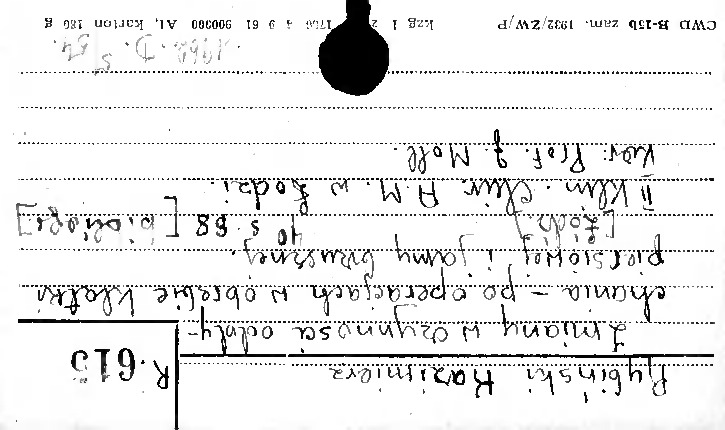 Rybiński Kazimierz
R.615
Zmiany w czynności oddy-
chania - po operacjach w obrębie klatki
piersiowej i jamy brzusznej.
[Łódź] 40 s. 88 [bibliogr.]
II Klin. Chir. A.M. w Łodzi.
Kier. Prof. J. Moll.
1962. D. s 54.
CWD B-15b zam. 1932/ZW/P kzg 1 2 1750 4 9 61 900300 A1, karton 180 g